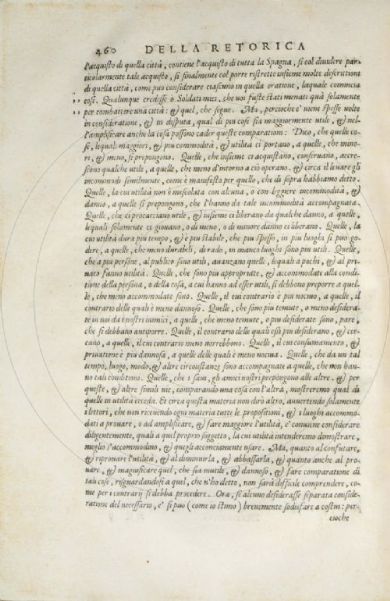 460 DELLA RETORICA
l'acquisto di quella città, contiene l'acquisto di tutta la Spagna, si col dividere par-
ticolarmente tale acquisto, si finalmente col porre ristrette insieme molte
di quella città, come può considerare ciascuno in quella oratione, laquale comincia
così. Qualunque credesse ò Soldati miei, che voi fuste stati menati quà solamente
per combattere una città; & quel, che segue. Ma, percioche è vien spesse volte
in consideratione, & in disputa, qual di più cose sia maggiormente utile, & nel-
l'amplificare anchi la cosa possino cader queste comparationi: Dico, che quelle co-
se, lequali maggiori, & più commodità, & utilità ci portano, a quelle, che mino-
ri, & meno, si prepongono. Quelle, che insieme ci acquistano, conservano, accre-
scono qualche utile, a quelle, che meno d'intorno a ciò operano. & circa il levare gli
incommodi similmente, come è manifesto per quelle, che di sopra habbiamo detto.
Quelle, la cui utilità non è mescolata con alcuna, o con leggiere incommodità, &
danno, a quelle si prepongono, che l'hanno da tale incommodità accompagnata.
Quelle, che ci procacciano utile, & insieme ci liberano da qualche danno, a quelle,
lequali solamente ci giovano, o di meno, o di minore danno ci liberano. Quelle, la
cui utilità dura più tempo, & è più stabile, che più spesso, in più luoghi si può go-
dere, a quelle, che meno durabili, di rado, in manco luoghi sono più utili. Quelle,
che a più persone, al publico sono utili, avanzano quelle, lequali a pochi, & al pri-
vato sieno utilità. Quelle, che sono più appropriate, & accommodate alla condi-
tione della persona, o della cosa, a cui hanno ad esser utili, si debbono preporre a quel-
le, che meno accommodate sono. Quelle, il cui contrario è più nocivo, a quelle, il
contrario delle quali è meno dannoso. Quelle, che sono più temute, o meno deside-
te in noi da i nostri nimici, a quelle, che meno temute, o più desiderate sono, pare,
che si debbano anteporre. Quelle, il contrario delle quali essi più desiderano, & cer-
cano, a quelle, il cui contrario meno vorrebbono. Quelle, il cui consumamento, &
privatione è più dannosa, a quelle delle quali è meno nociva. Quelle, che da un tal
tempo, luogo, modo, & altre circostanze sono accompagnate a quelle, che non han-
no tali conditioni. Quelle, che i savi, gli amici nostri prepongono alle altre. & per
queste, & altre simili vie, comparando una cosa con l'altra, mostreremo qual di
quelle in utilità ecceda. Et circa questa materia non dirò altro, avvertendo solamente
i lettori, che non ricevendo ogni materia tutte le propositioni, & i luoghi accommo-
dati a provare, o ad amplificare, & fare maggiore l'utilità, è conviene considerare
diligentemente, quali a quel proprio soggetto, la cui utilità intenderemo dimostrare,
meglio s'accommodino, & quegli acconciamente usare. Ma, quanto al confutare,
& riprovare l'utilità, & al diminuirla, & abbassarla, & quanto anche al pro-
vare, & magnificare quel, che sia inutile, & dannoso, & fare comparatione di
tali cose, risguardandosi a quel, che n'ho detto, non sarà difficile comprendere, co-
me per i contrarij si debba procedere. Ora, se alcuno desiderasse separata conside-
ratione del necessario, e' si può (come io stimo) brevemente sodisfare a costui: per-
cioche